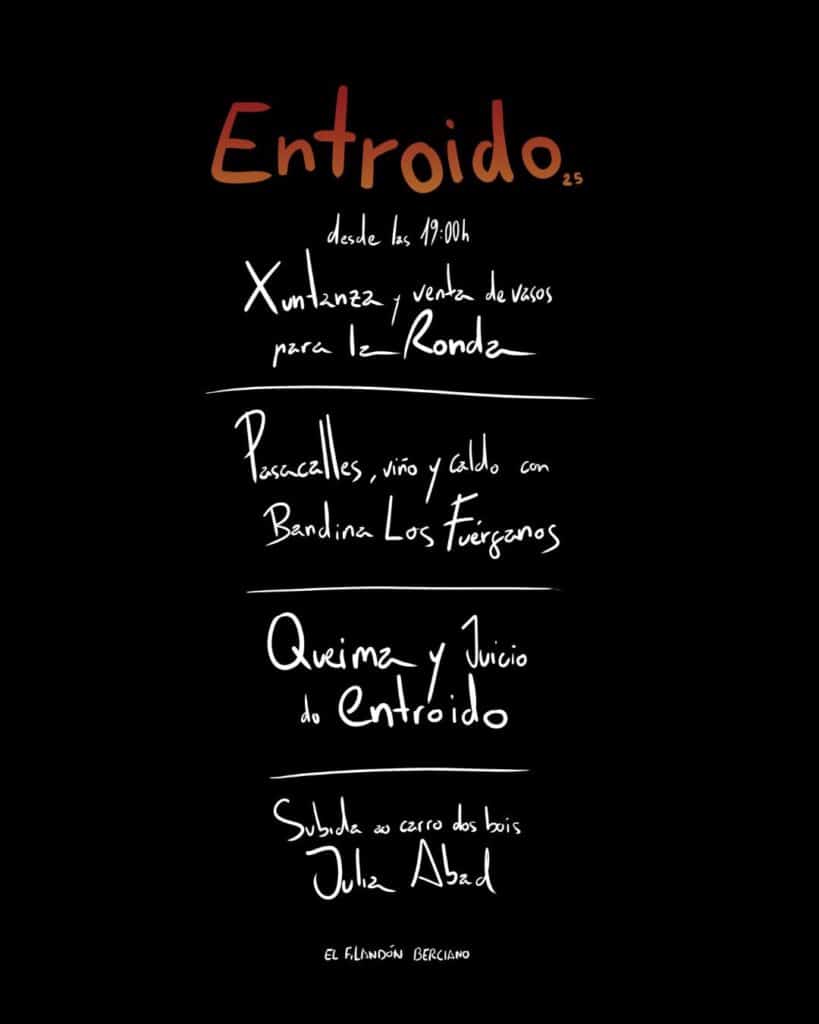 Entroido 25
desde las 19:00h
Xuntanza y venta de vasos
para la Ronda
Pasacalles, viño y caldo con
Bandina Los Fuérganos
Queima y Juicio
do entroido
Subida ao carro dos bois
Julia Abad
EL FILANDÓN BERCIANO